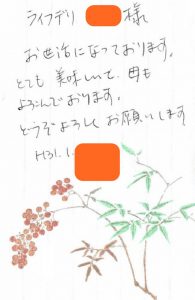 ライフデリ 様
お世話になっております。
とても 美味しいて、母も
よろこんでおります。
どうぞよろしく お願いします
H31.1.